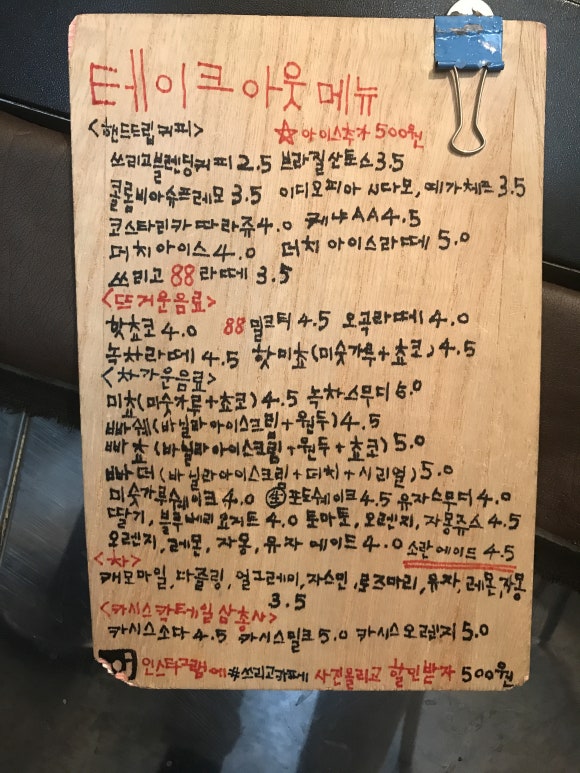 테이크아웃 메뉴
<핸드드립커피> ☆아이스추가 500원
쓰리고블렌딩커피 2.5 브라질산토스 3.5
콜롬비아슈프레모 3.5 이디오피아 시다모, 예가체프 3.5
코스타리카 따라쥬 4.0 케냐AA 4.5
더치아이스 4.0 더치 아이스라떼 5.0
쓰리고 88라떼 3.5
<뜨거운음료>
핫쵸코 4.0 88밀크티 4.5 오곡라떼 4.0
녹차라떼 4.5 핫미쵸(미숫가루+쵸코) 4.5
<차가운음료>
미쵸(미숫가루+쵸코) 4.5 녹차스무디 5.0
빠쉐(바닐라아이스크림+원두) 4.5
빠쵸(바닐라아이스크림+원두+쵸코) 5.0
빠더(바닐라아이스크림+더치+시리얼) 5.0
미숫가루쉐이크 4.0 生포도쉐이크 4.5 유자스무디 4.0
딸기, 블루베리요거트 4.0 토마토, 오렌지, 자몽쥬스 4.5
오렌지, 레몬, 자몽, 유자 에이드 4.0 소란에이드 4.5
<차>
캐모마일, 다즐링, 얼그레이, 자스민, 로즈마리, 유자, 레몬, 자몽
3.5
<카시스칵테일 삼총사>
카시스소다 4.5 카시스밀크 5.0 카시스오렌지 5.0
인스타그램에 #쓰리고카페 사진올리고 할인받자 500원